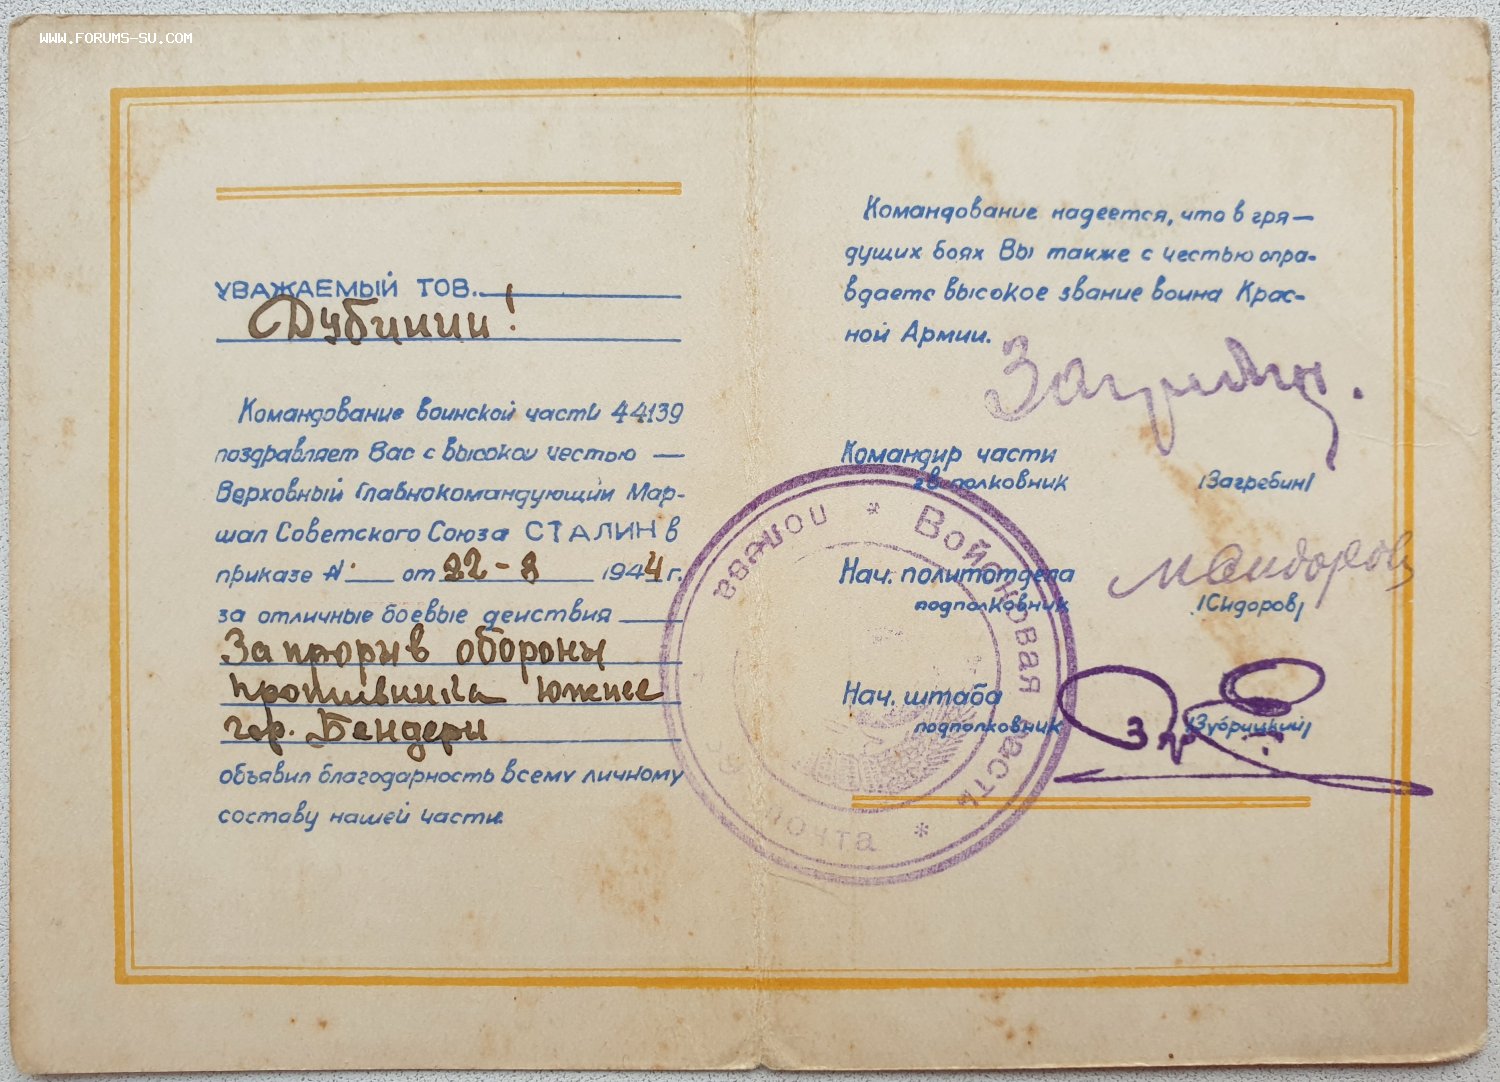 WWW.FORUMS-SU.COM
УВАЖАЕМЫЙ ТОВ.
Дубинин!
Командование воинской части 44139
поздравляет Вас с высокой честью —
Верховный Главнокомандующий Мар-
шал Советского Союза СТАЛИН в
приказе N. от 22-8 1944 г.
за отличные боевые действия
За прорыв обороны
противника южнее
гор. Бендеры
объявил благодарность всему личному
составу нашей части.
Командование надеется, что в гря—
дущих боях Вы также с честью опра-
вдаете высокое звание воина Крас-
ной Армии.
Загребин.
Командир части
гв. полковник /Загребин/
Нач. политотдела М Сидоров
подполковник /Сидоров/
Нач. штаба
подполковник /Зубрицкий/
Войсковая часть * полевая почта *